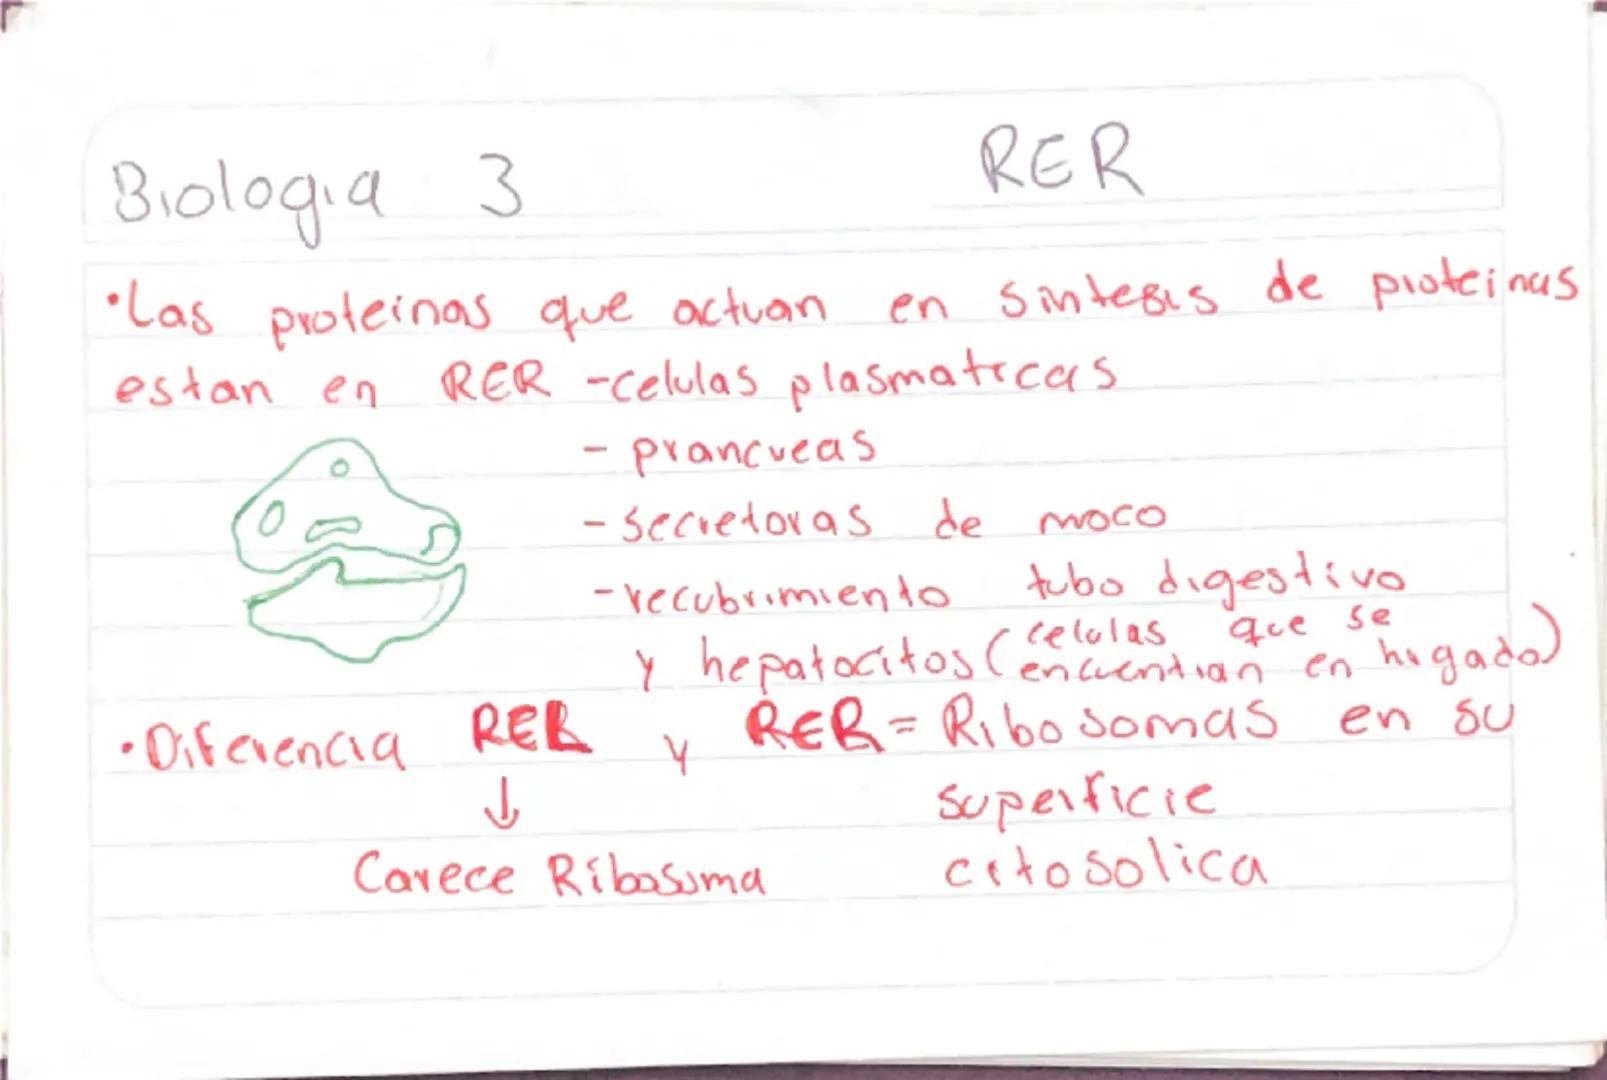 Biologia 3 RER
•Las proteinas que actuan en sintesis de proteinas
estan en RER -celulas plasmaticas
- prancueas
- secretoras de moco
- recubrimiento tubo digestivo
y hepatocitos (celulas que se
encuentran en higado)
•Diferencia RER y RER = Ribosomas en su
↓ superficie
Carece Ribosoma citosolica